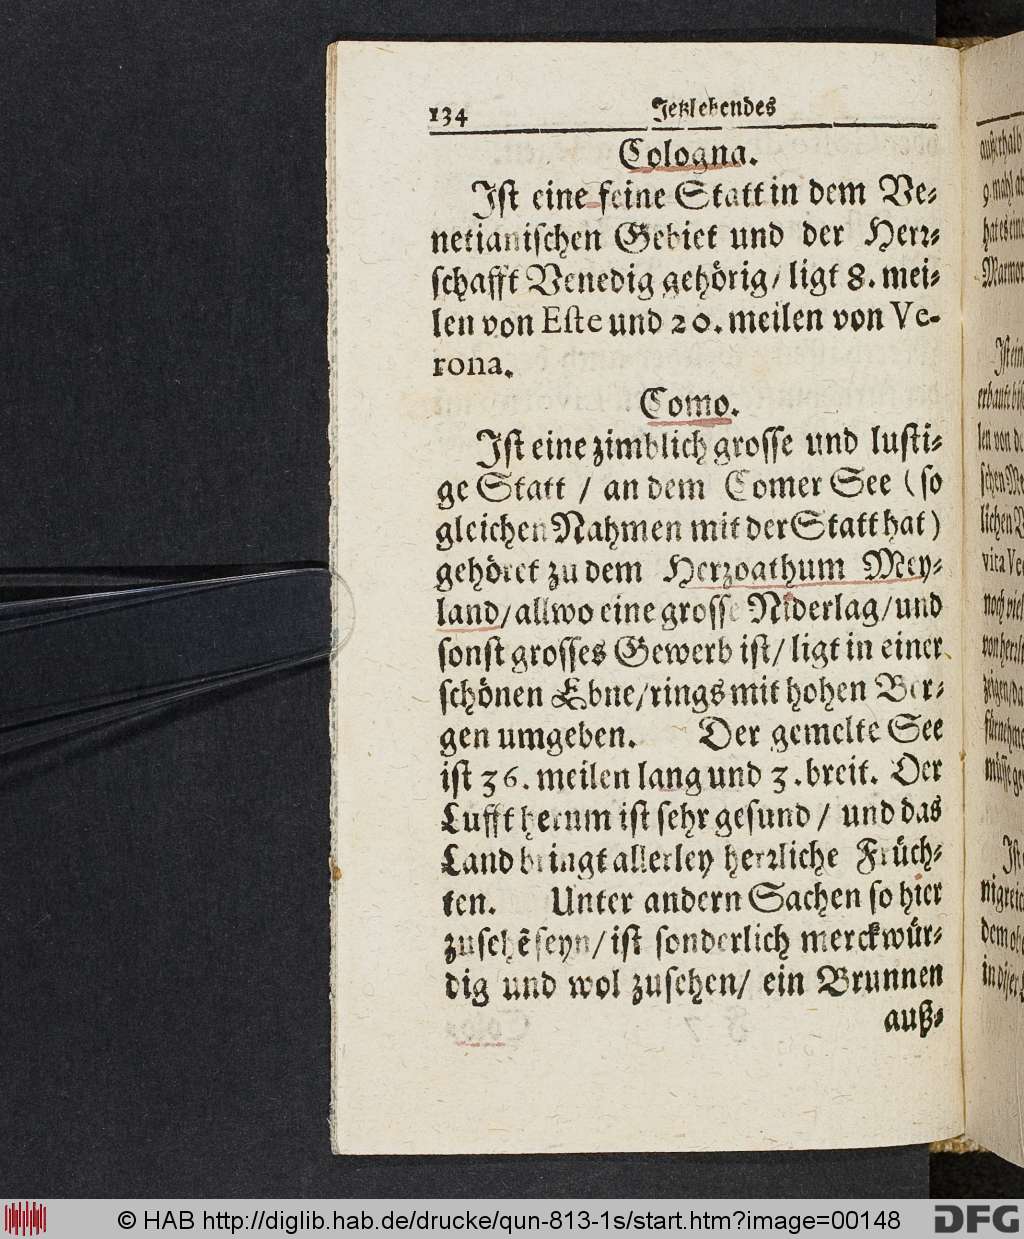 134 Jetzlebendes
Cologna.
Ist eine feine Statt in dem Ve-
netianischen Gebiet und der Herr-
schafft Venedig gehörig / ligt 8. mei-
len von Este und 20. meilen von Ve-
rona.
Como.
Ist eine zimblich grosse und lusti-
ge Statt / an dem Comer See (so
gleichen Nahmen mit der Statt hat)
gehöret zu dem Herzogthum Mey-
land / allwo eine grosse Niderlag / und
sonst grosses Gewerb ist / ligt in einer
schönen Ebne / rings mit hohen Ber-
gen umgeben. Der gemelte See
ist 36. meilen lang und 3. breit. Der
Lufft herum ist sehr gesund / und das
Land bringt allerley herrliche Früch-
ten. Unter andern Sachen so hier
zusehẽ seyn / ist sonderlich merckwür-
dig und wol zusehen / ein Brunnen
auß-
© HAB http://diglib.hab.de/drucke/qun-813-1s/start.htm?image=00148
DFG